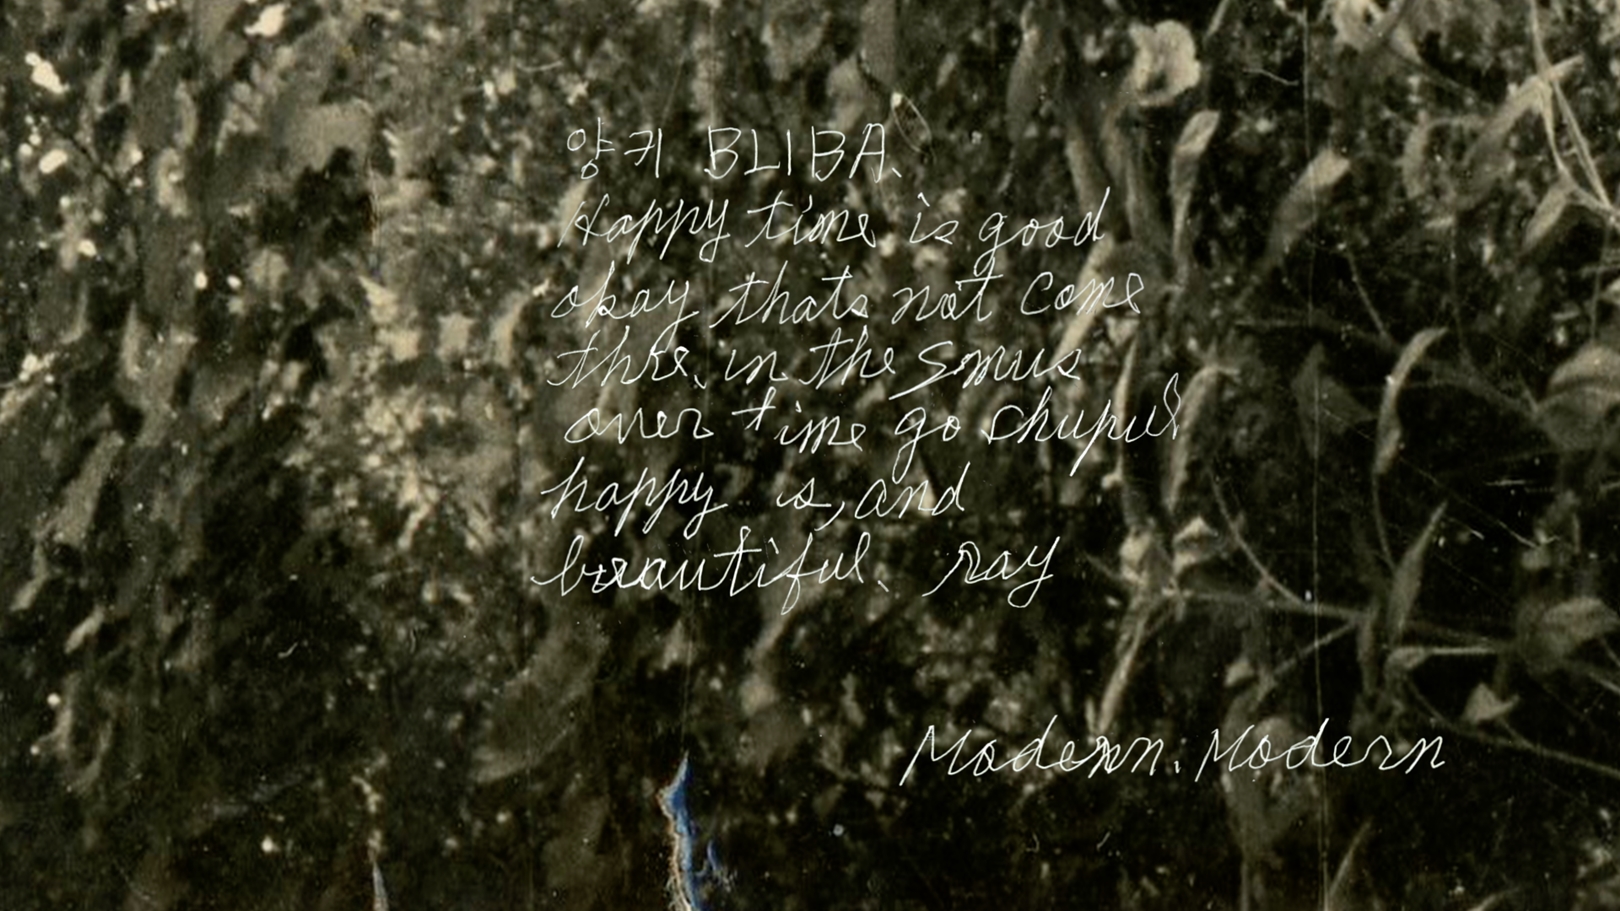 양키 BLIBA.
Happy time is good
okay thats not come
thre. in the smus
over time go
happy is, and
beautiful. ray
Modern. Modern